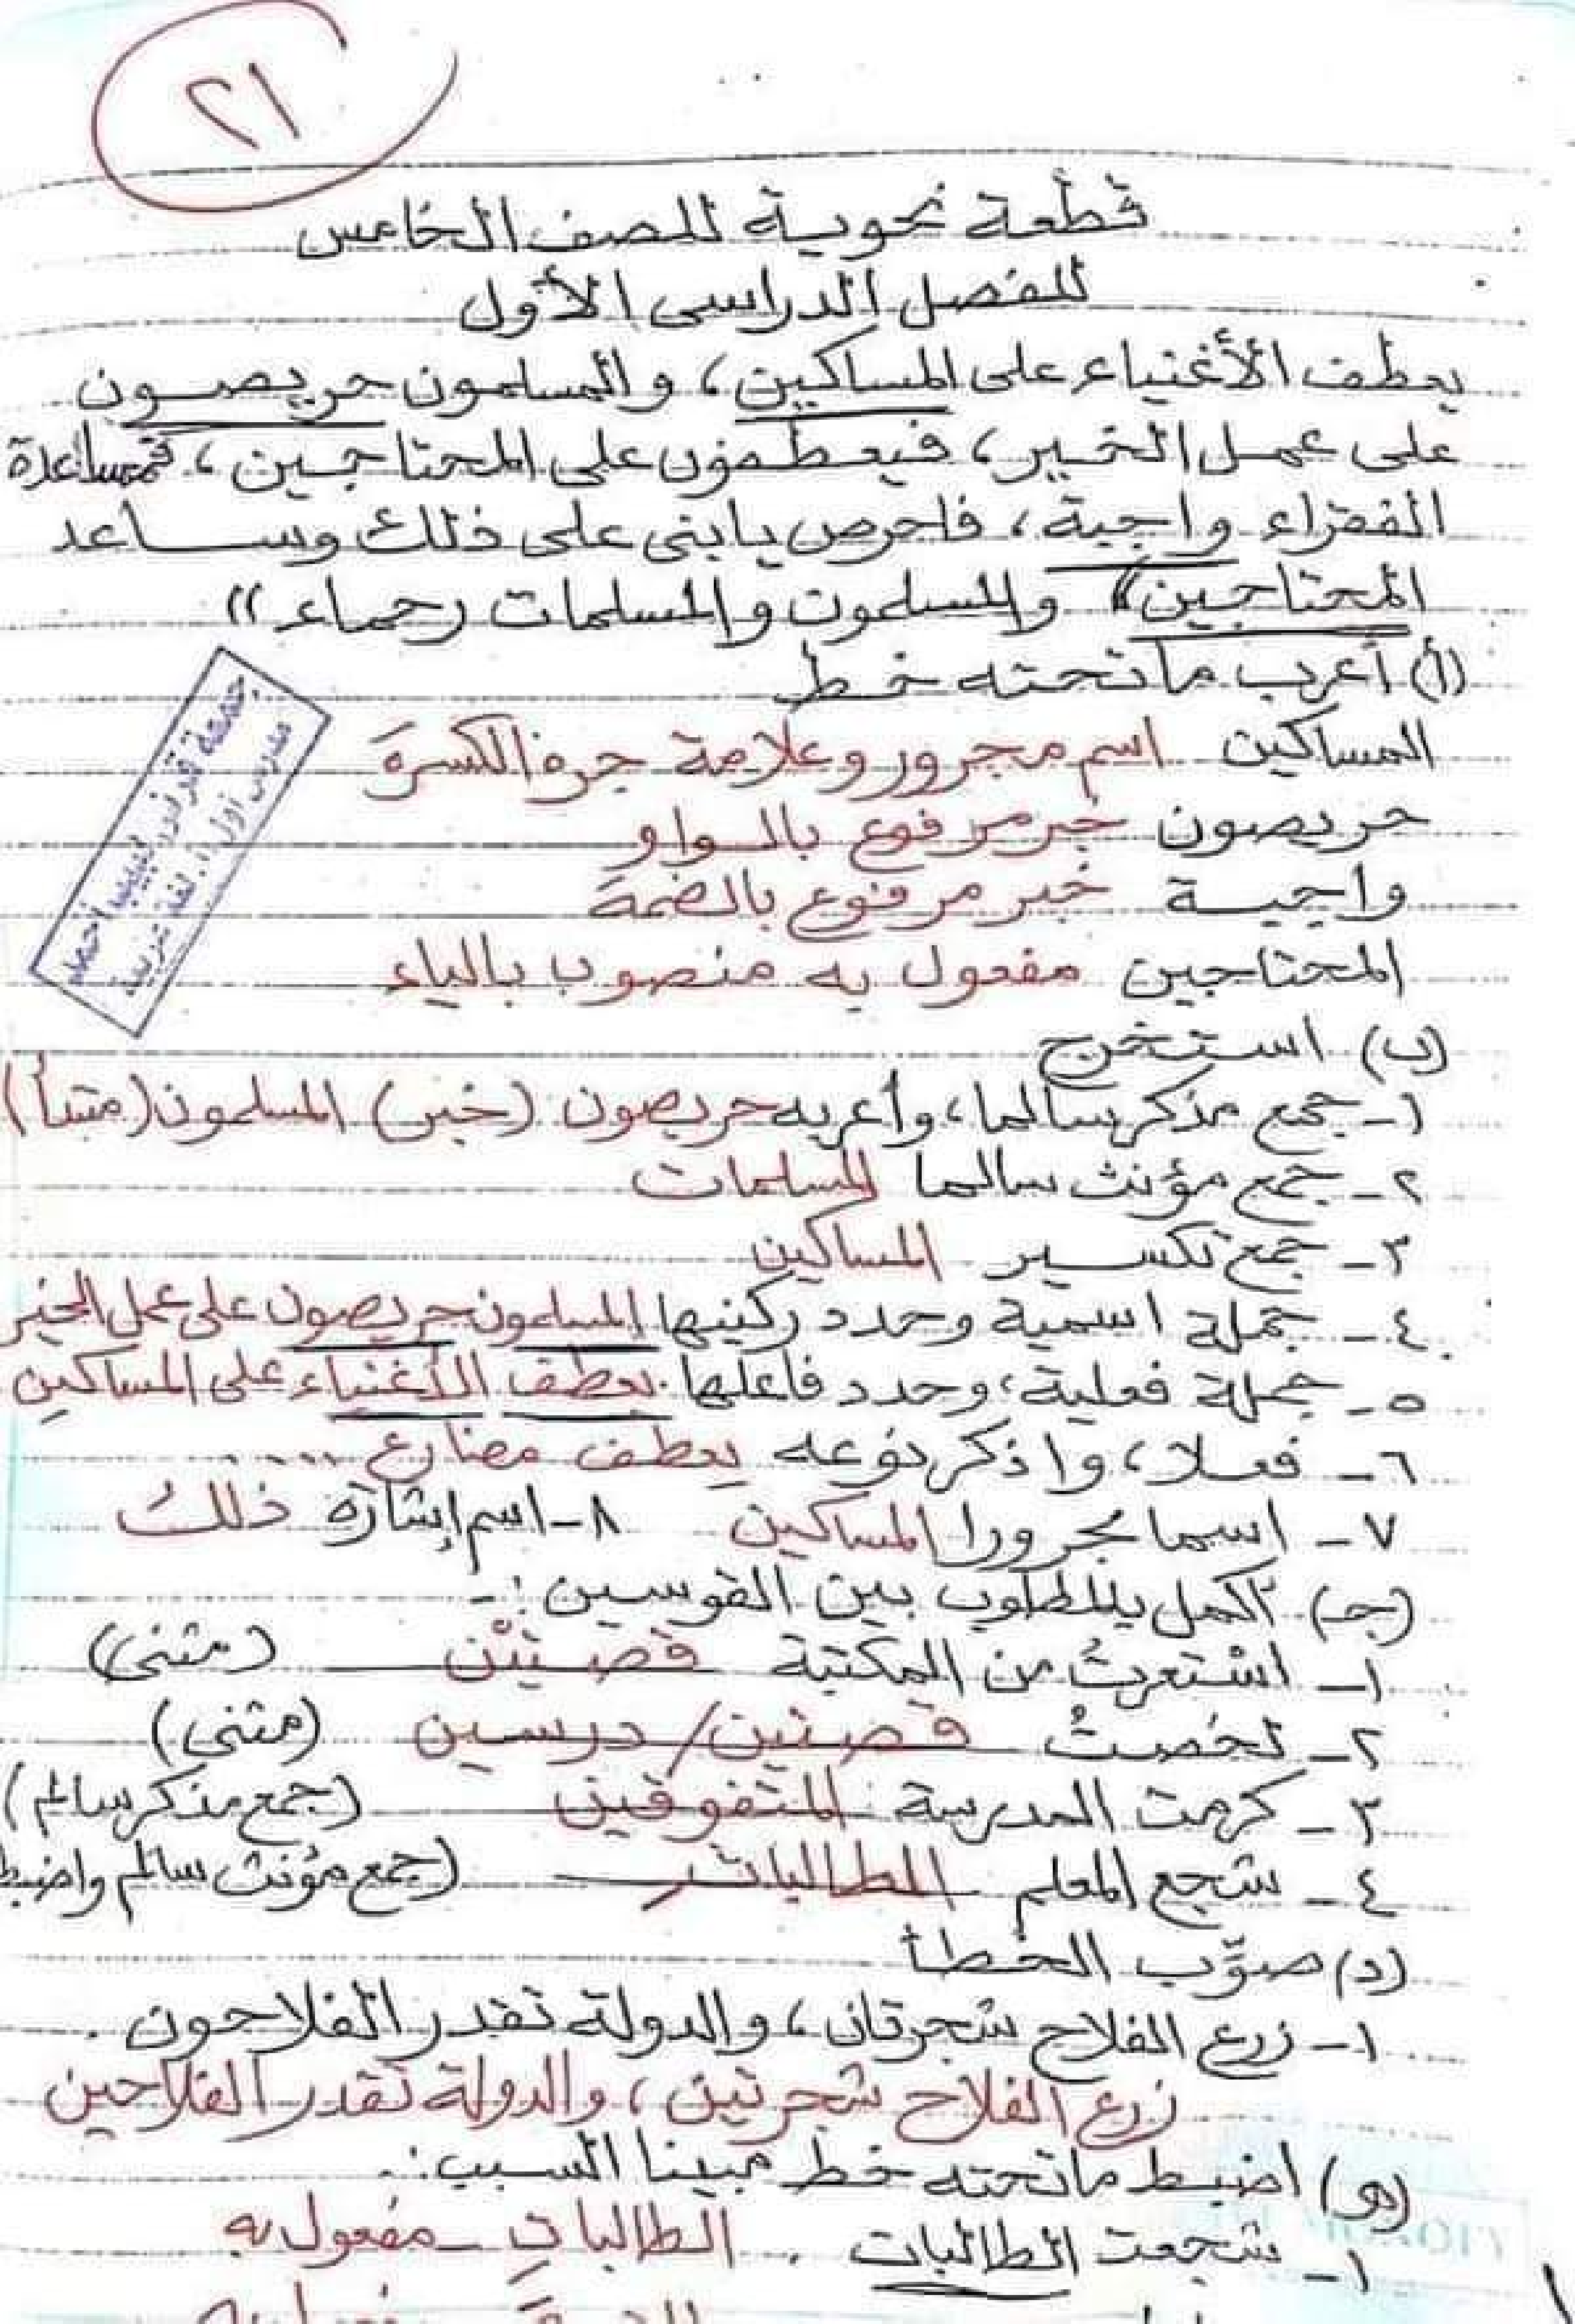 ٢١
قطعة نحوية للصف الخامس
للفصل الدراسى الأول
يعطف الأغنياء على المساكين، والمسلمون حريصون
على عمل الخير، فيعطفون على المحتاجين، فمساعدة
الفقراء واجبة، فاحرص يا بنى على ذلك وساعد
المحتاجين" والمسلمون والمسلمات رحماء"
(أ) أعرب ما تحته خط
المساكين اسم مجرور وعلامة جره الكسرة
حريصون خبر مرفوع بالواو
واجبة خبر مرفوع بالضمة
المحتاجين مفعول به منصوب بالياء
(ب) استخرج
١- جمع مذكر سالما، وأعربه حريصون (خبر) المسلمون (مبتدأ)
٢- جمع مؤنث سالما المسلمات
٣- جمع تكسير المساكين
٤- جملة اسمية وحدد ركنيها المسلمون حريصون على عمل الخير
٥- جملة فعلية، وحدد فاعلها يعطف الأغنياء على المساكين
٦- فعلا، واذكر نوعه يعطف مضارع ....
٧- اسما مجرورا المساكين ٨- اسم إشارة ذلك
(جـ) اكمل بالمطلوب بين القوسين :-
١- اشتعرتُ من المكتبة قصتيْن (مثنى)
٢- لخصتُ قصتين / درسين (مثنى)
٣- كرمت المدرسة المتفوقين (جمع مذكر سالم)
٤- شجع المعلم الطالباتِ (جمع مؤنث سالم واضبط
(د) صوِّب الخطأ
١- زرع الفلاح شجرتان، والدولة تقدر الفلاحون.
زرع الفلاح شجرتين، والدولة تقدر الفلاحين
(هـ) اضبط ما تحته خط مبينا السبب:.
١- شجعت الطالبات . الطالباتِ - مفعول به